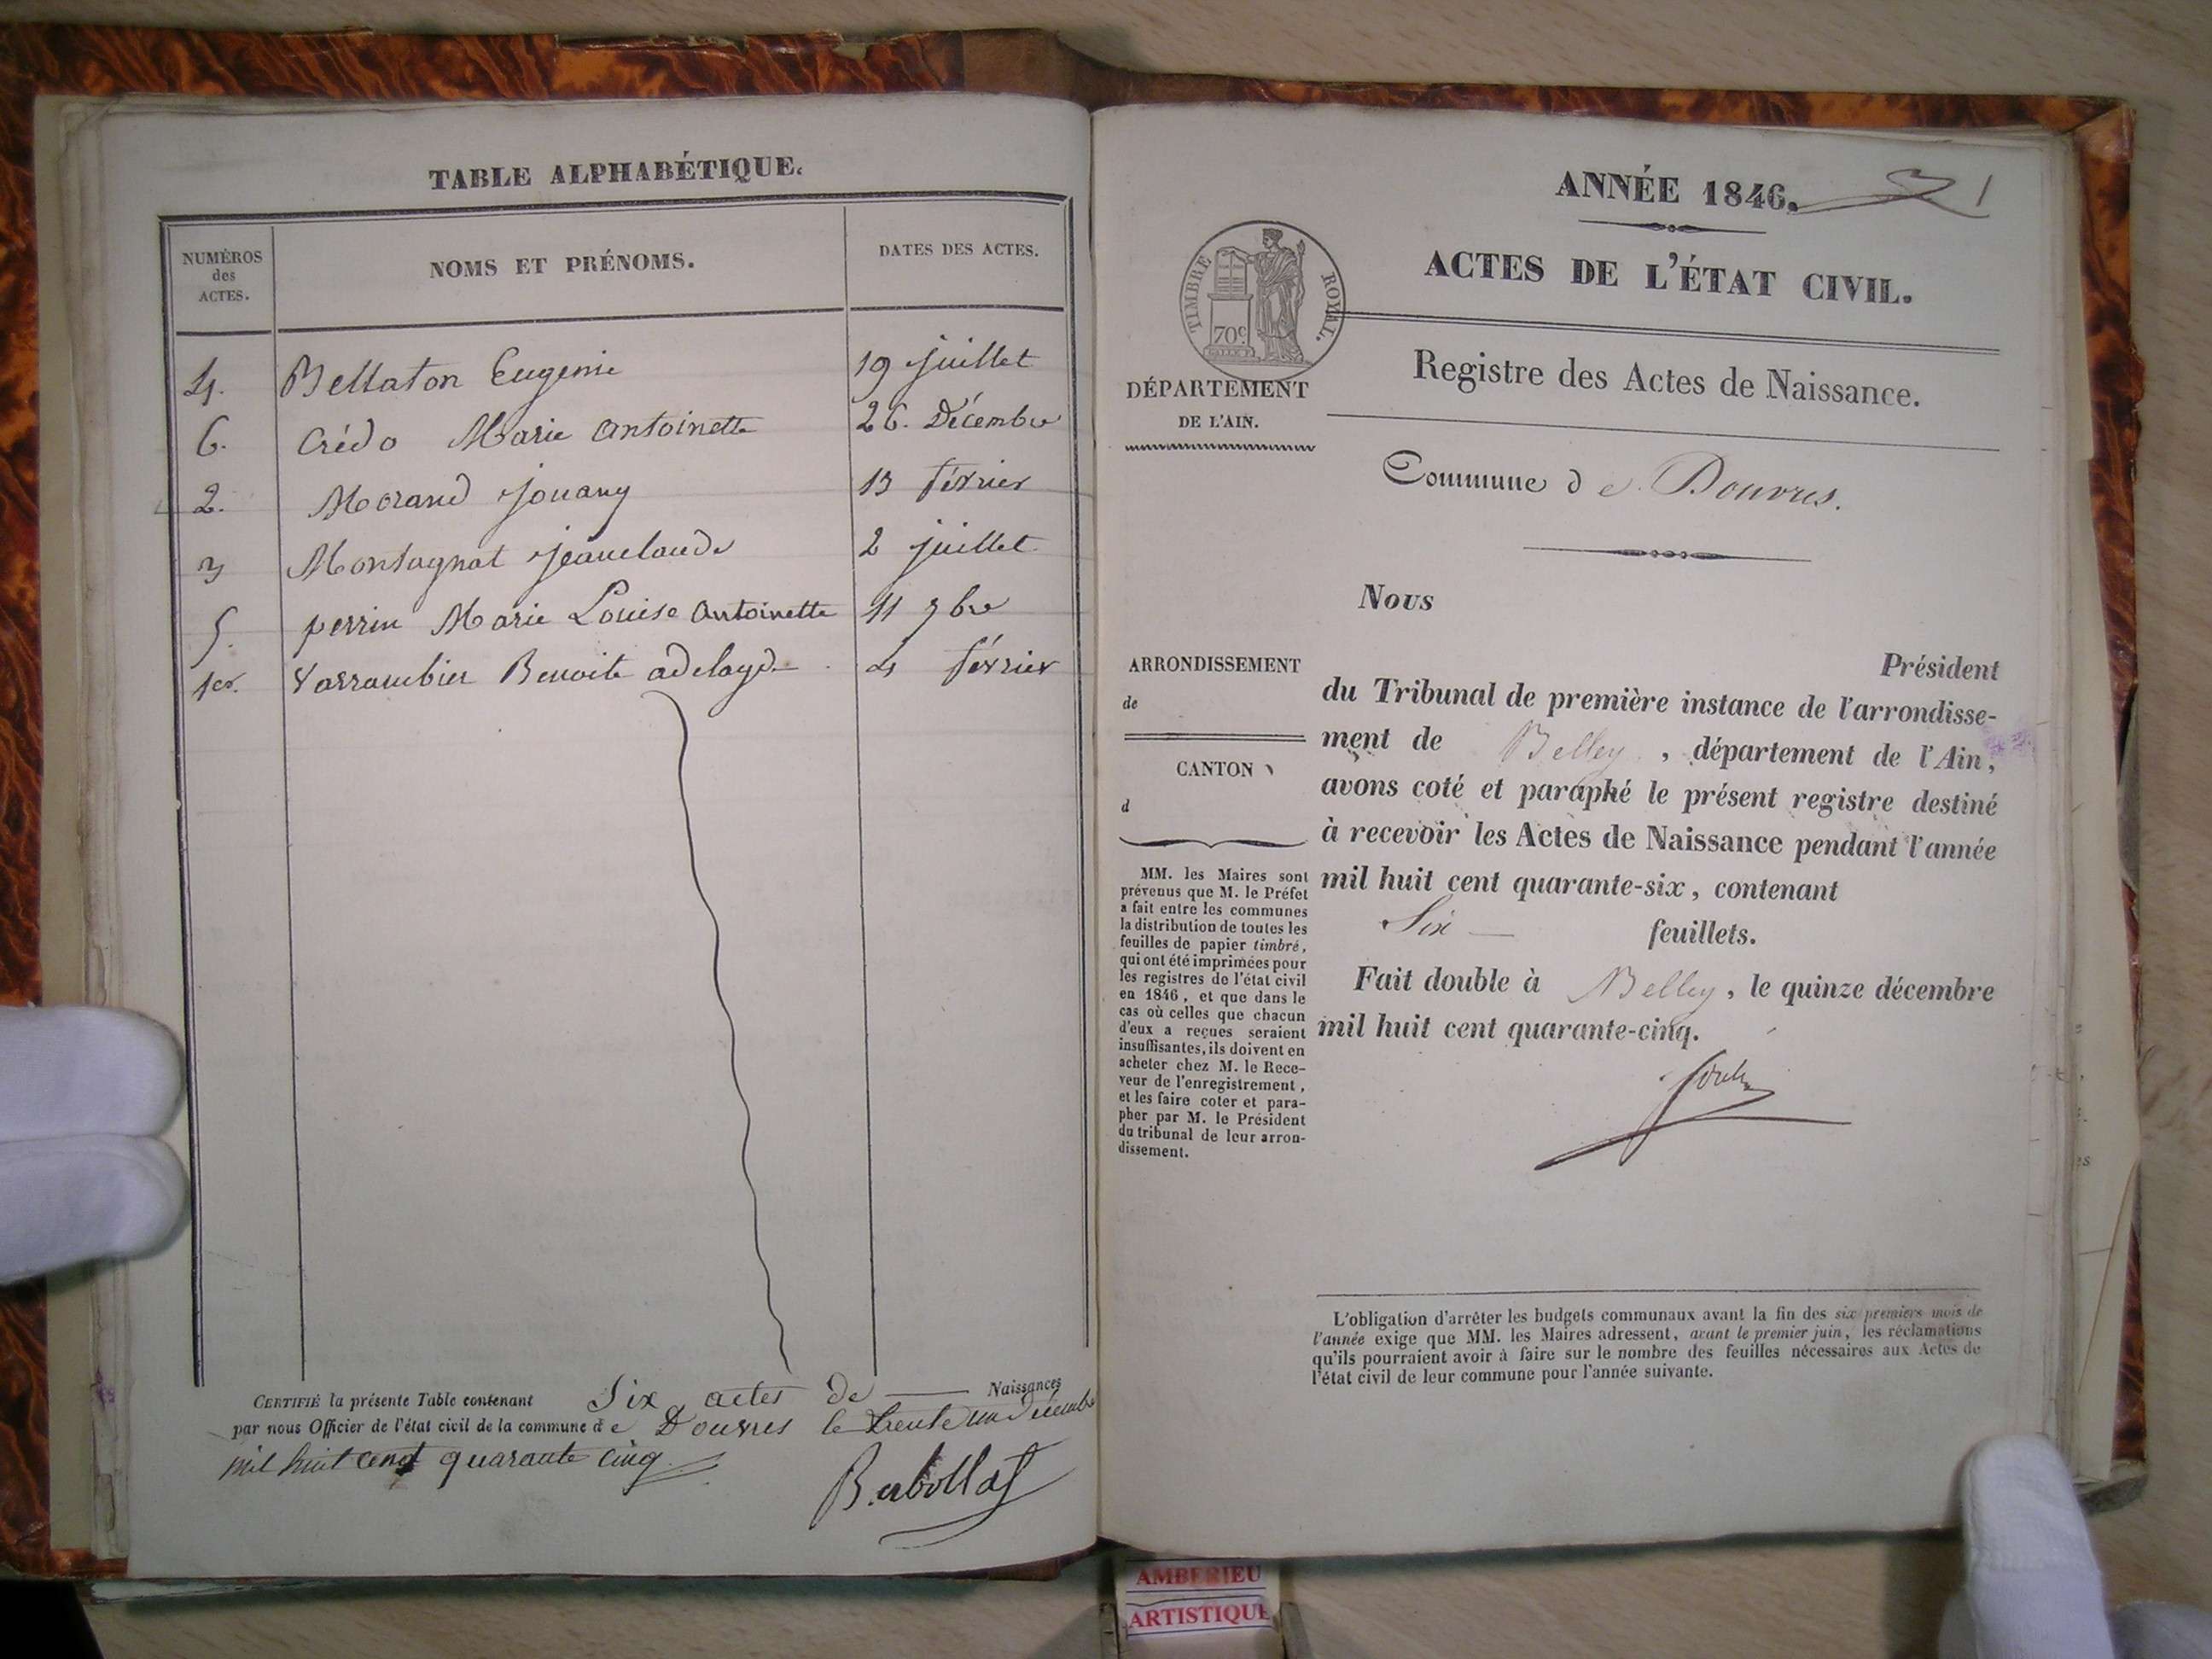 TABLE ALPHABÉTIQUE.
NUMÉROS
des
ACTES.
NOMS ET PRÉNOMS.
DATES DES ACTES.
4. Bellaton Eugenie 19 juillet
6. Crédo Marie Antoinette 26. Décembre
2. Morand Jouany 13 février
3 Montagnat Jeanclaude 2 juillet
5. perrin Marie Louise Antoinette 11 9bre
1er. Varrambier Benoite adelayde 4 février
CERTIFIÉ la présente Table contenant Six actes de Naissances
par nous Officier de l'état civil de la commune de Douvres le trente un Décembre
mil huit cent quarante cinq
ANNÉE 1846. 1
ACTES DE L'ÉTAT CIVIL.
TIMBRE ROYAL.
70c
DÉPARTEMENT
DE L'AIN.
Registre des Actes de Naissance.
Commune de Douvres.
Nous
Président
du Tribunal de première instance de l'arrondisse-
ment de Belley, département de l'Ain,
avons coté et paraphé le présent registre destiné
à recevoir les Actes de Naissance pendant l'année
mil huit cent quarante-six, contenant
Six feuillets.
Fait double à Belley, le quinze décembre
mil huit cent quarante-cinq.
ARRONDISSEMENT
de
CANTON
d
MM. les Maires sont
prévenus que M. le Préfet
a fait entre les communes
la distribution de toutes les
feuilles de papier timbré,
qui ont été imprimées pour
les registres de l'état civil
en 1846, et que dans le
cas où celles que chacun
d'eux a reçues seraient
insuffisantes, ils doivent en
acheter chez M. le Rece-
veur de l'enregistrement,
et les faire coter et para-
pher par M. le Président
du tribunal de leur arron-
dissement.
L'obligation d'arrêter les budgets communaux avant la fin des six premiers mois de
l'année exige que MM. les Maires adressent, avant le premier juin, les réclamations
qu'ils pourraient avoir à faire sur le nombre des feuilles nécessaires aux Actes de
l'état civil de leur commune pour l'année suivante.
AMBERIEU
ARTISTIQUE